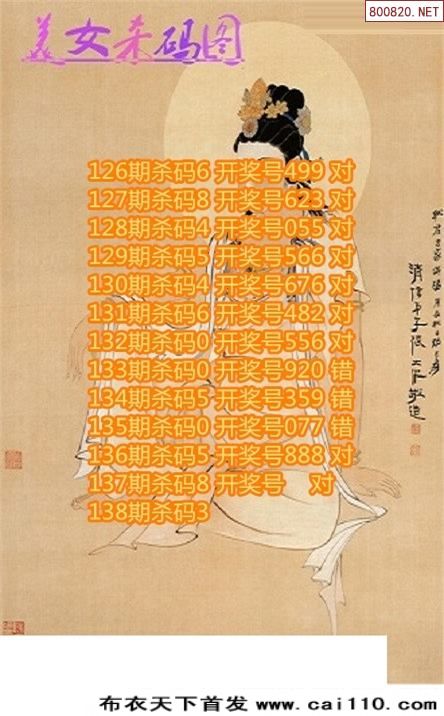 800820.NET
美女杀码图
126期杀码6 开奖号499 对
127期杀码8 开奖号623 对
128期杀码4 开奖号055 对
129期杀码5 开奖号566 对
130期杀码4 开奖号676 对
131期杀码6 开奖号482 对
132期杀码0 开奖号556 对
133期杀码0 开奖号920 错
134期杀码5 开奖号359 错
135期杀码0 开奖号077 错
136期杀码5 开奖号888 对
137期杀码8 开奖号 对
138期杀码3
布衣天下首发 www.cai110.com